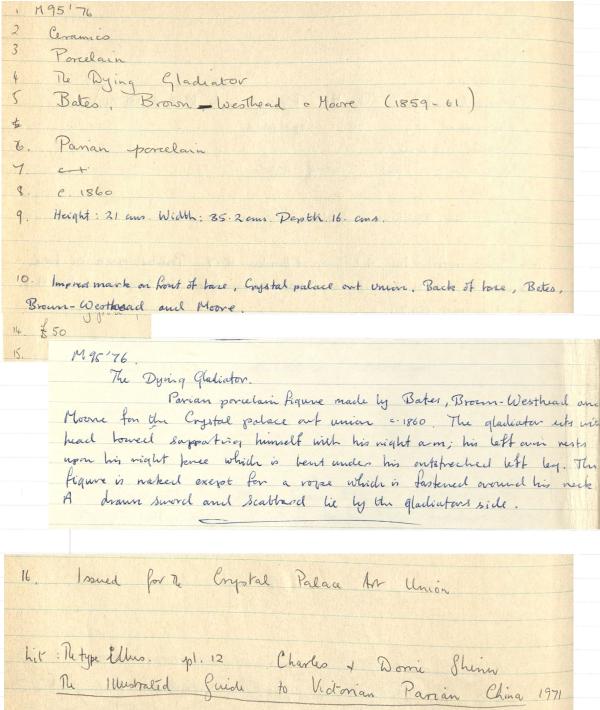 1 M95'76
2 Ceramics
3 Porcelain
4 The Dying Gladiator
5 Bates, Brown-Westhead & Moore (1859-61)
6. Parian porcelain
7
8 c. 1860
9. Height: 21 cms. Width: 35.2 cms. Depth. 16. cms.
10. Impress mark on front of base, Crystal palace art union. Back of base, Bates,
Brown-Westhead and Moore.
14. £50
15.
M95'76.
The Dying Gladiator.
Parian porcelain figure made by Bates, Brown-Westhead and
Moore for the Crystal palace art union c.1860. The gladiator sits wit
head bowed supporting himself with his right arm; his left arm rests
upon his right knee which is bent under his outstreched left leg. The
figure is naked except for a rope which is fastened around his neck
A drawn sword and scabbard lie by the gladiators side.
16. Issued for the Crystal Palace Art Union
Lit: The type illus. pl. 12 Charles & Dorrie Shinn
The Illustrated Guide to Victorian Parian China 1971